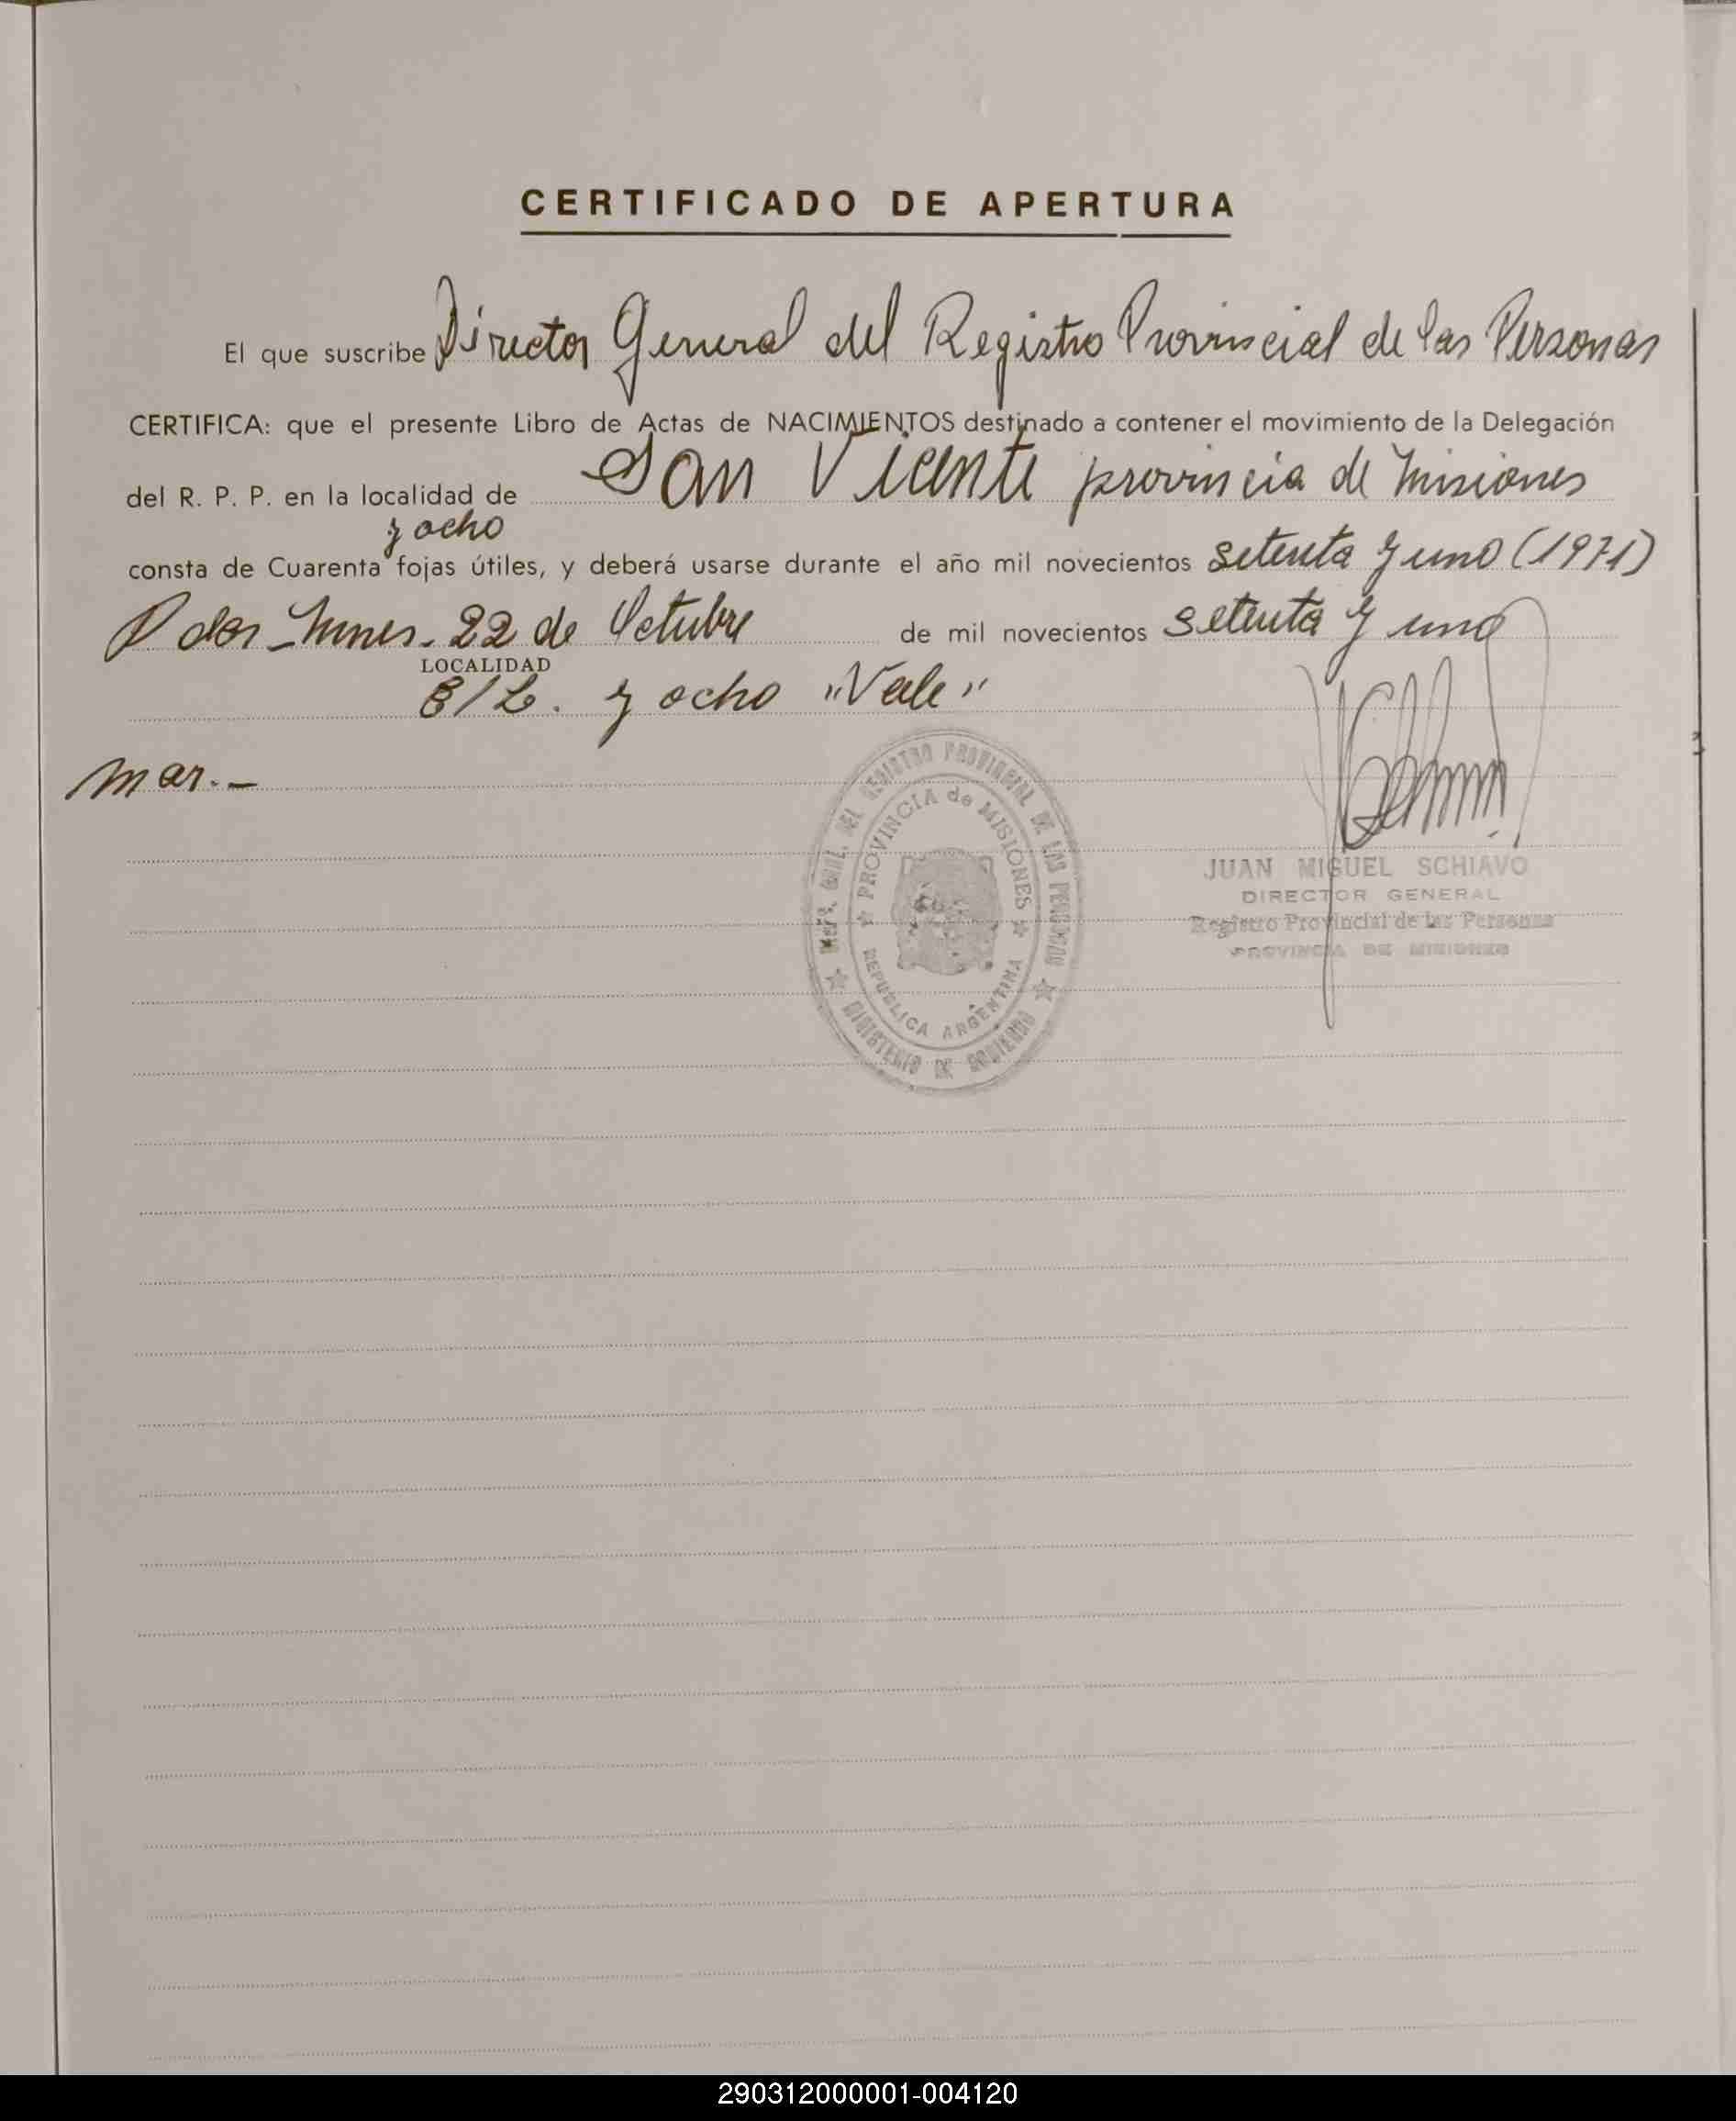 CERTIFICADO DE APERTURA
El que suscribe Director General del Registro Provincial de las Personas
CERTIFICA: que el presente Libro de Actas de NACIMIENTOS destinado a contener el movimiento de la Delegación
del R. P. P. en la localidad de San Vicente provincia de Misiones
y ocho
consta de Cuarenta fojas útiles, y deberá usarse durante el año mil novecientos setenta y uno (1971)
Pdas - Mnes. 22 de Octubre de mil novecientos setenta y uno
LOCALIDAD
E/L. y ocho "Vale"
mar.-
DEL REGISTRO PROVINCIAL DE LAS PERSONAS
PROVINCIA de MISIONES
REPUBLICA ARGENTINA
MINISTERIO DE GOBIERNO
JUAN MIGUEL SCHIAVO
DIRECTOR GENERAL
Registro Provincial de las Personas
PROVINCIA DE MISIONES
290312000001-004120